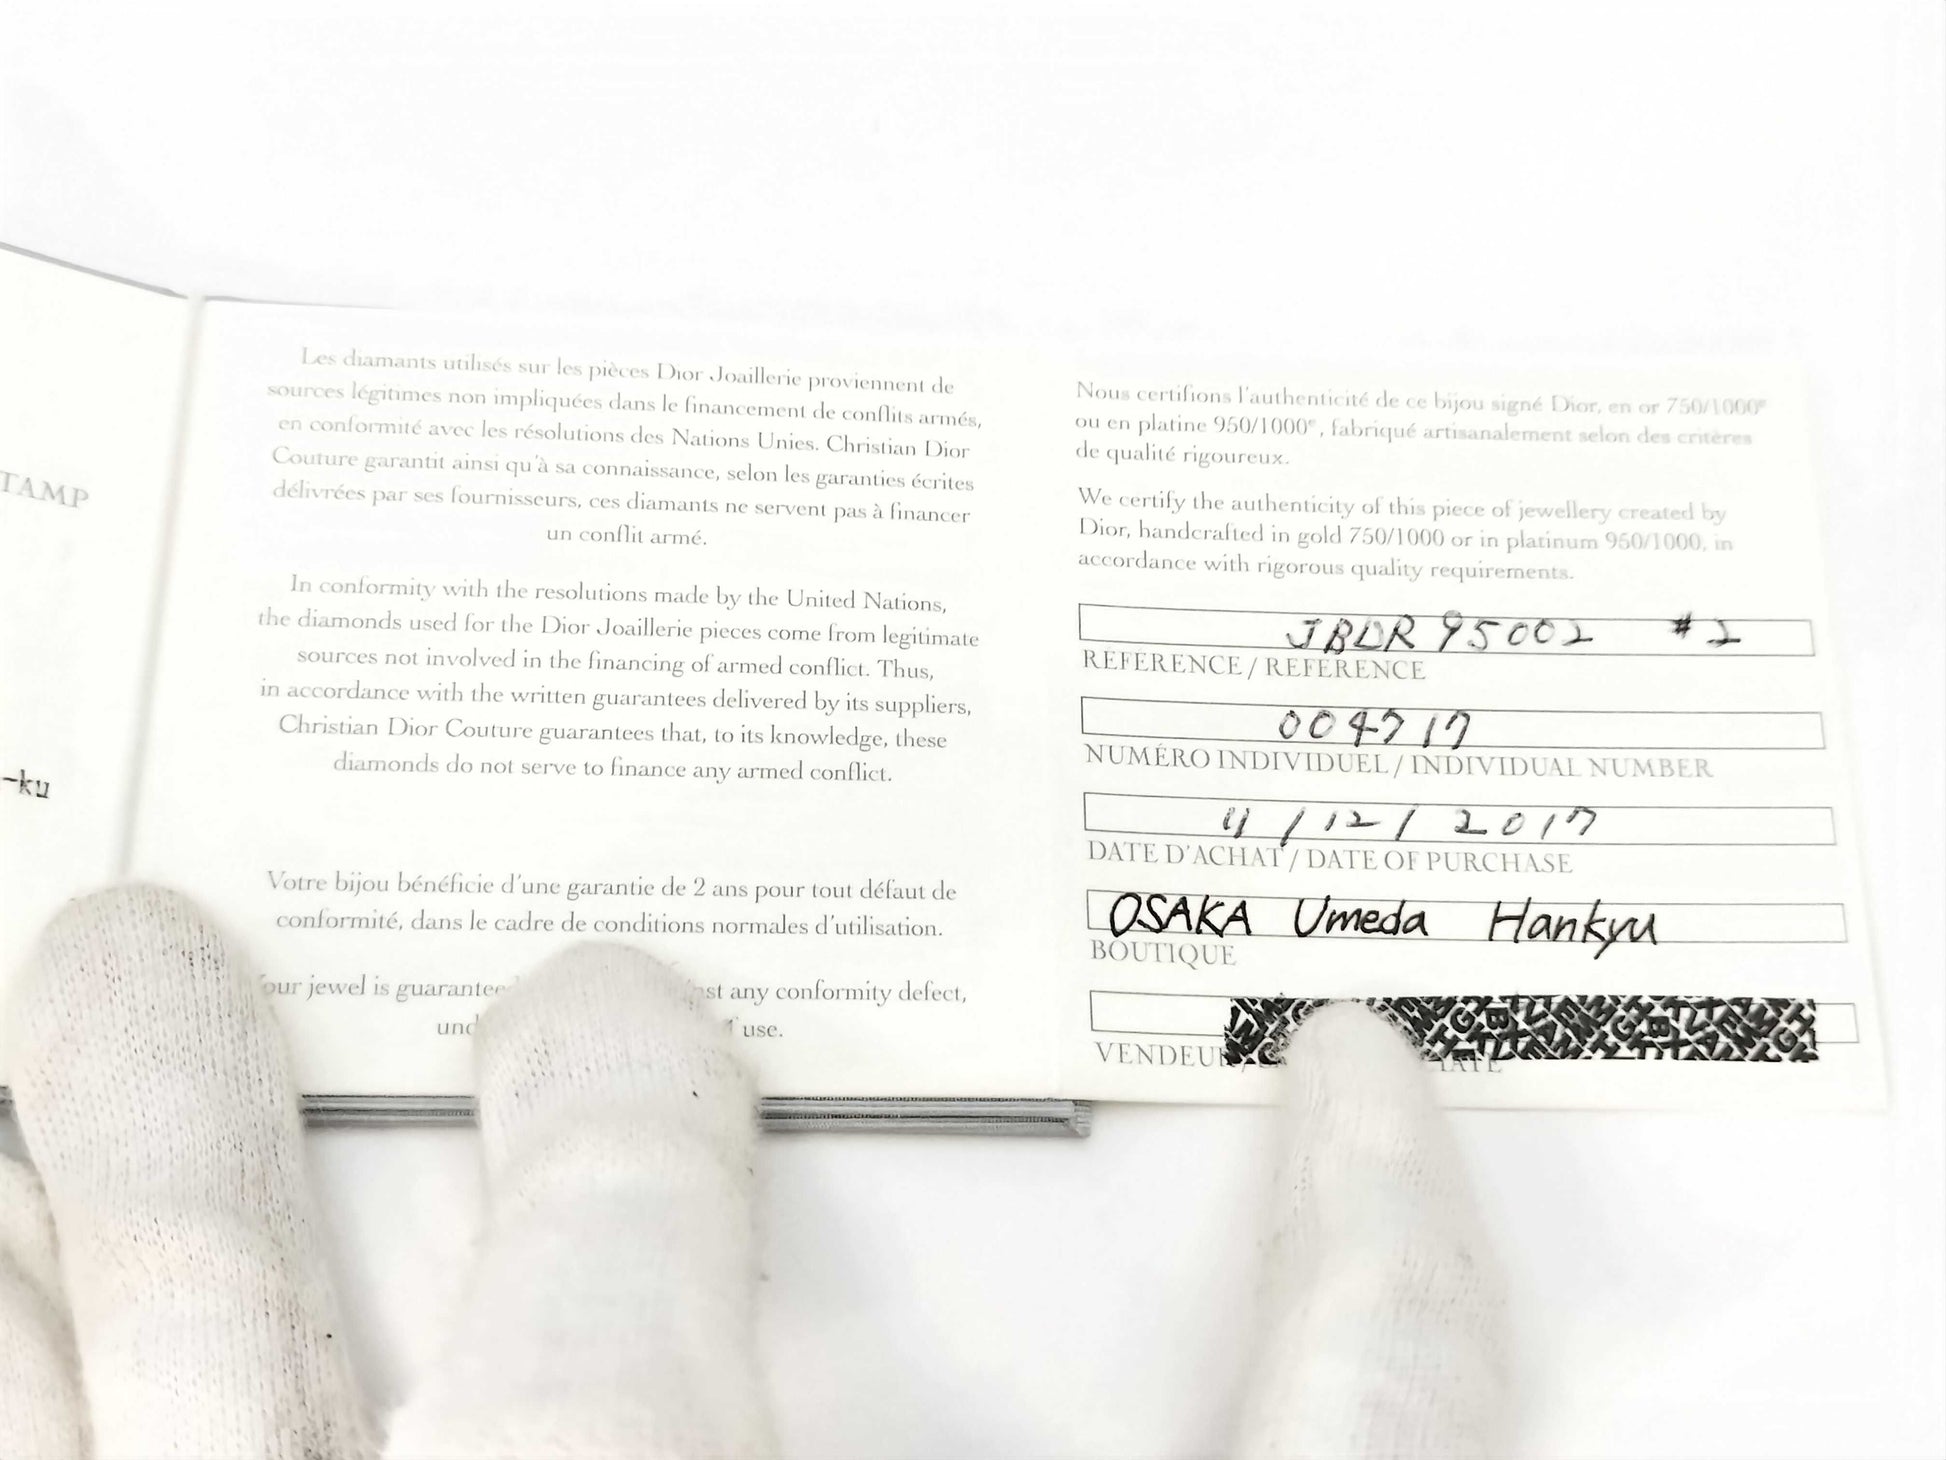 TAMP
-ku
Les diamants utilisés sur les pièces Dior Joaillerie proviennent de
sources légitimes non impliquées dans le financement de conflits armés,
en conformité avec les résolutions des Nations Unies. Christian Dior
Couture garantit ainsi qu'à sa connaissance, selon les garanties écrites
délivrées par ses fournisseurs, ces diamants ne servent pas à financer
un conflit armé.
In conformity with the resolutions made by the United Nations,
the diamonds used for the Dior Joaillerie pieces come from legitimate
sources not involved in the financing of armed conflict. Thus,
in accordance with the written guarantees delivered by its suppliers,
Christian Dior Couture guarantees that, to its knowledge, these
diamonds do not serve to finance any armed conflict.
Votre bijou bénéficie d'une garantie de 2 ans pour tout défaut de
conformité, dans le cadre de conditions normales d'utilisation.
our jewel is guarantee st any conformity defect,
und use.
Nous certifions l'authenticité de ce bijou signé Dior, en or 750/1000e
ou en platine 950/1000e, fabriqué artisanalement selon des critères
de qualité rigoureux.
We certify the authenticity of this piece of jewellery created by
Dior, handcrafted in gold 750/1000 or in platinum 950/1000, in
accordance with rigorous quality requirements.
JBDR 95002 #2
RÉFÉRENCE / REFERENCE
004717
NUMÉRO INDIVIDUEL / INDIVIDUAL NUMBER
11 / 12 / 2017
DATE D'ACHAT / DATE OF PURCHASE
OSAKA Umeda Hankyu
BOUTIQUE
VENDEU